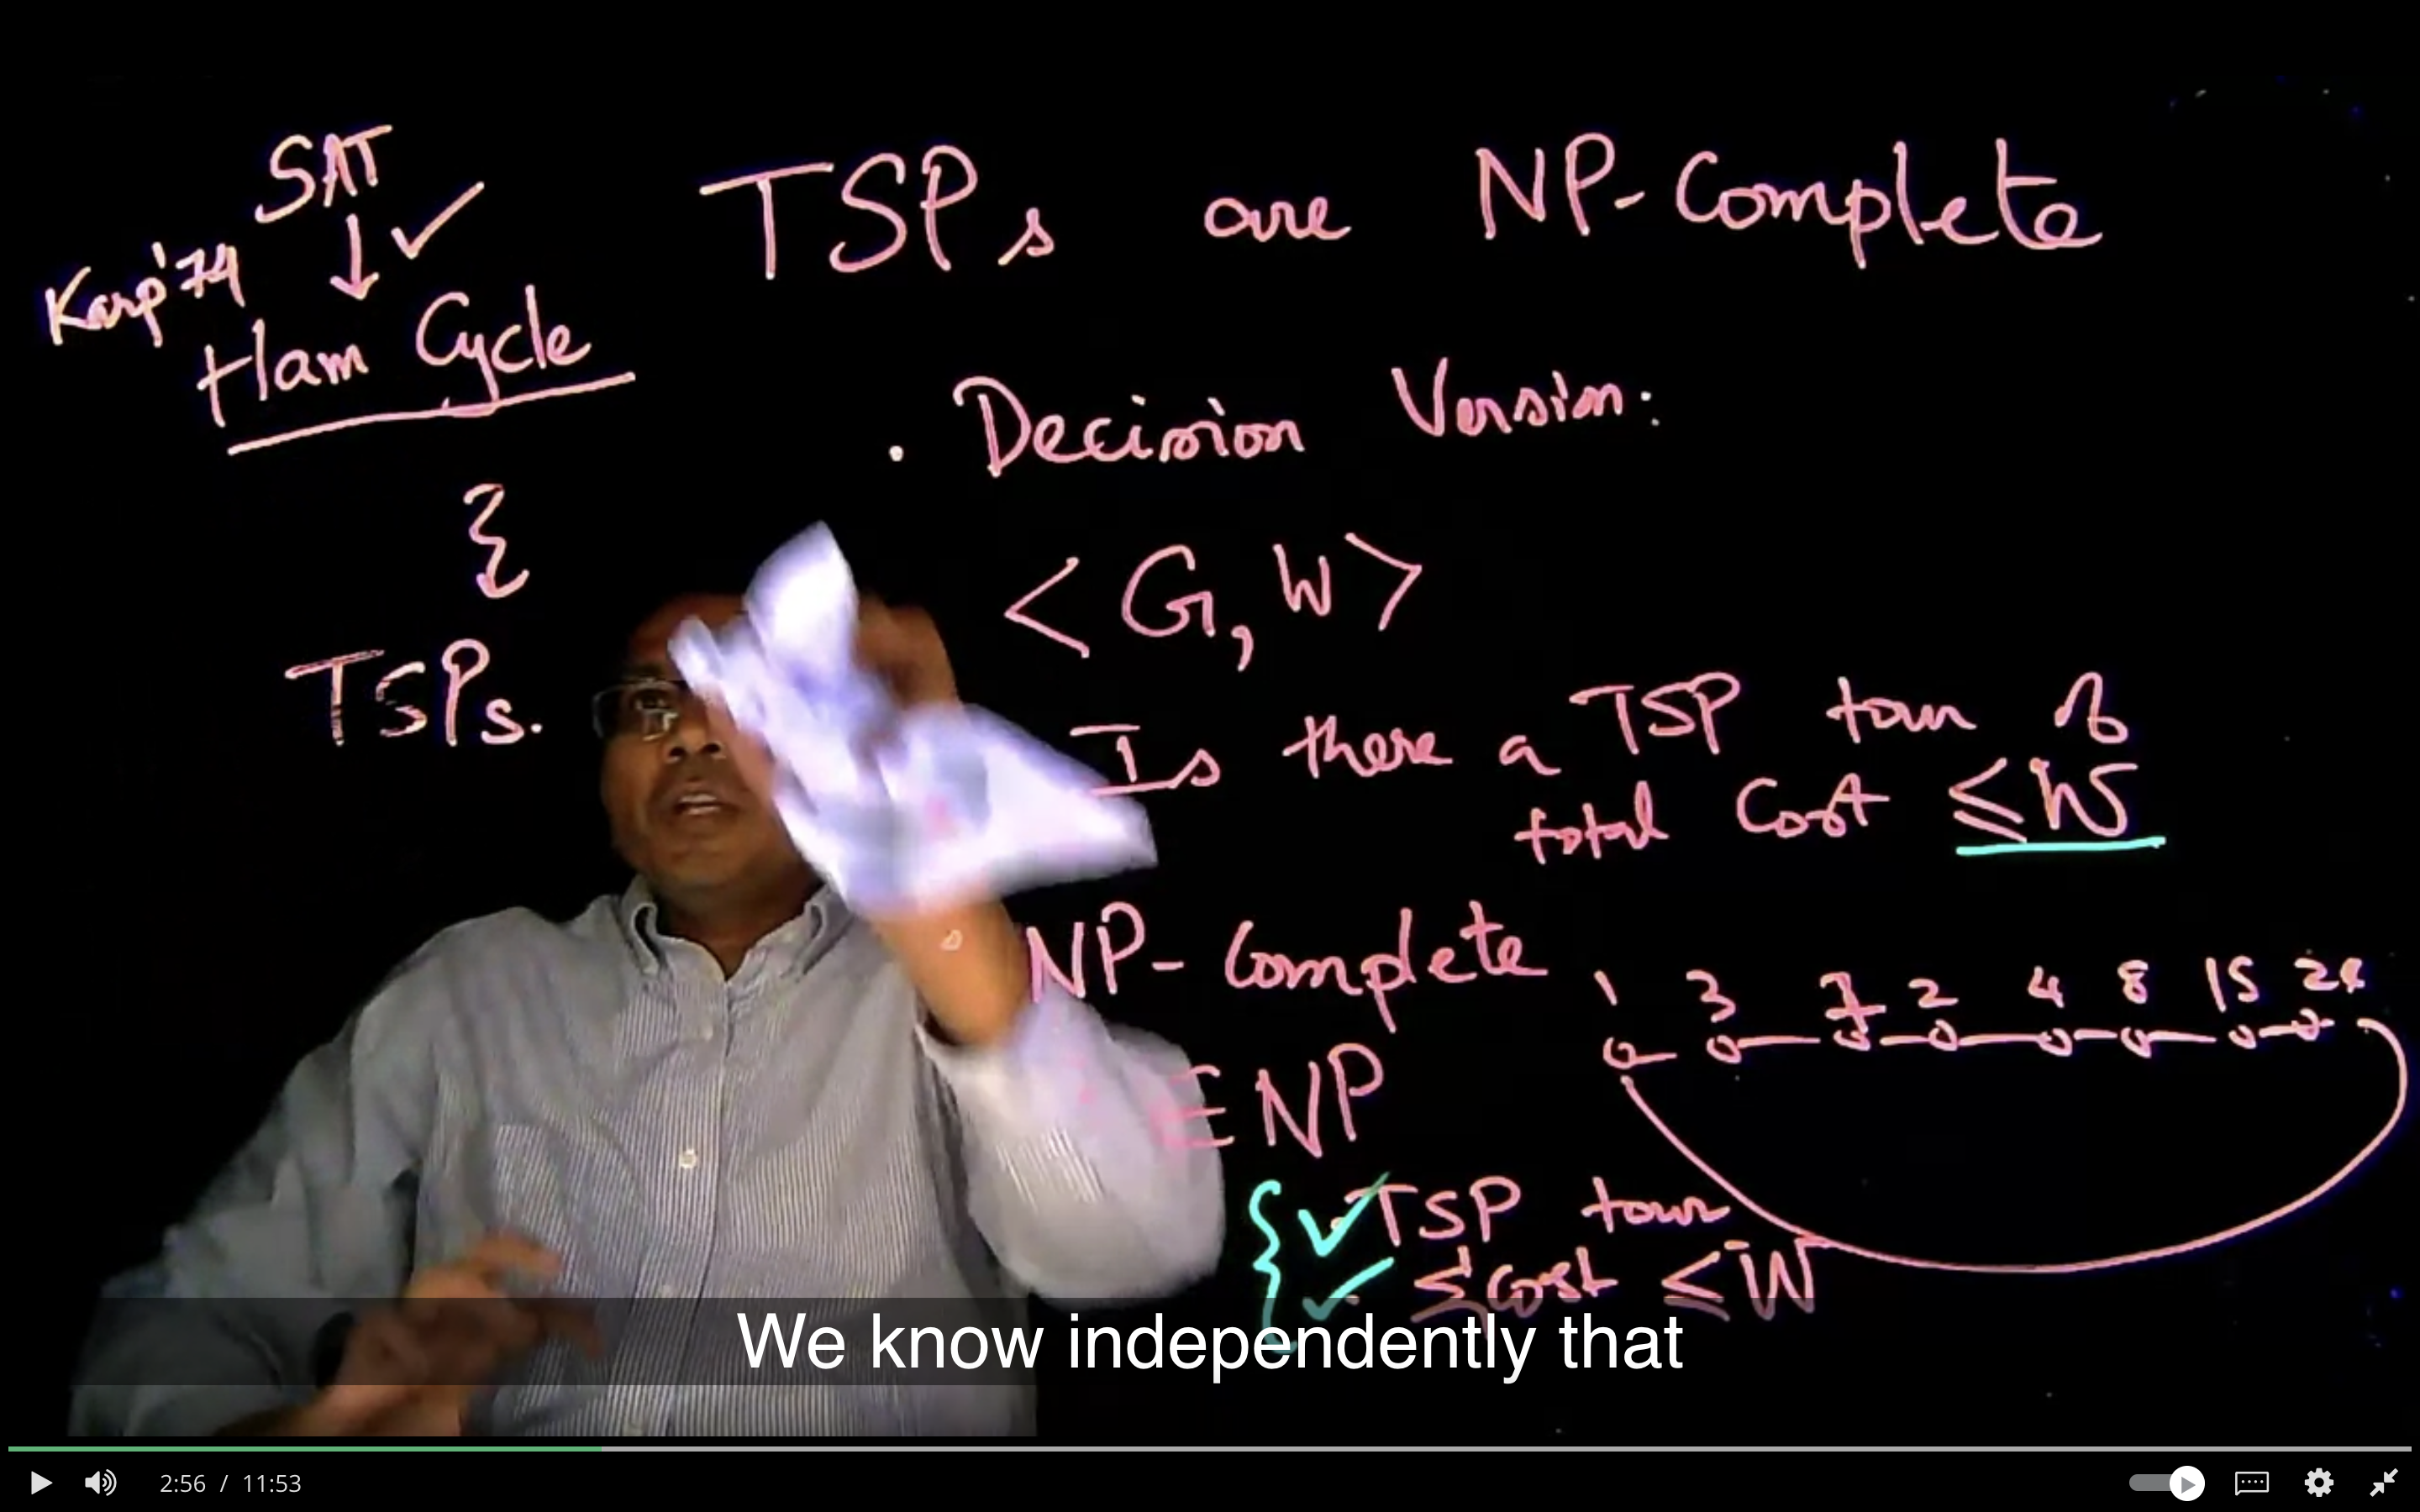 SAT
↓ ✓
Karp'74
Ham Cycle
TSPs.
TSPs are NP-Complete
. Decision Version:
<G, W>
Is there a TSP tour of
total Cost ≤W
NP-Complete
∈ NP
1 3 7 2 4 8 15
✓ TSP tour
✓ Cost ≤W
We know independently that
2:56 / 11:53